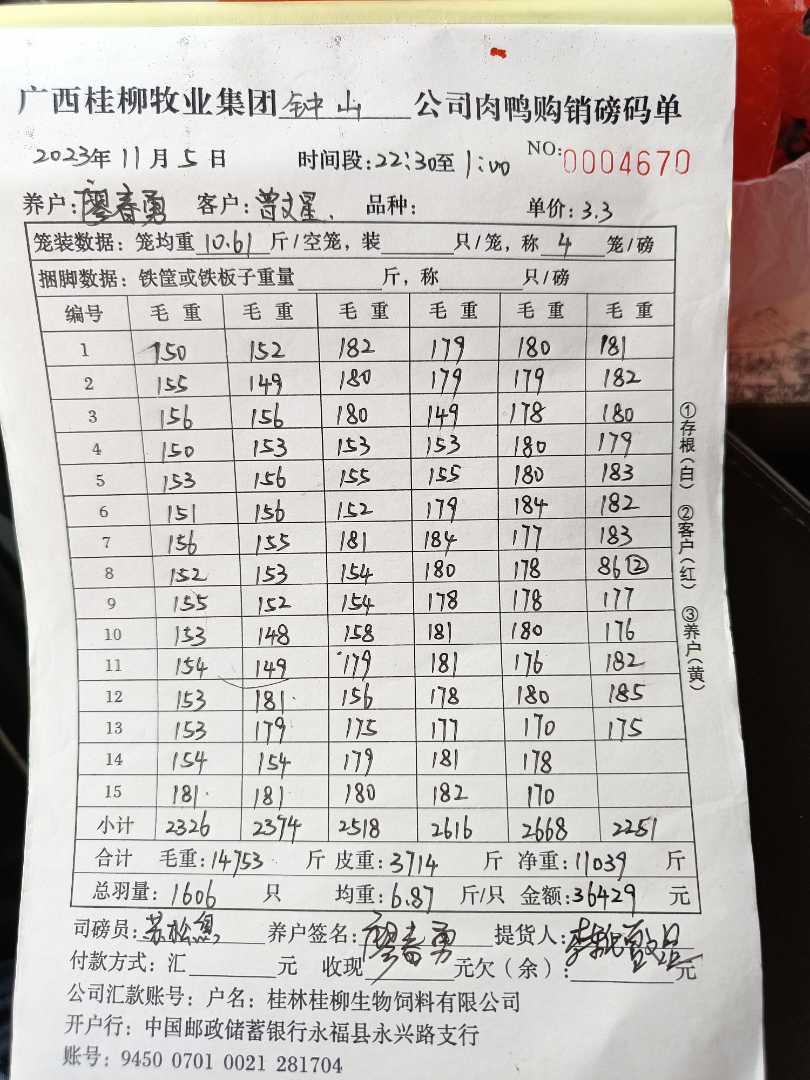 广西桂柳牧业集团 钟山 公司肉鸭购销磅码单
2023年 11月 5日 时间段:22:30至 1:00 NO:0004670
养户:廖春勇 客户:曾文星. 品种: 单价:3.3
笼装数据:笼均重 10.61 斤/空笼,装 只/笼,称 4 笼/磅
捆脚数据:铁筐或铁板子重量 斤,称 只/磅
编号 毛重 毛重 毛重 毛重 毛重 毛重
1 150 152 182 179 180 181
2 155 149 180 179 179 182
3 156 156 180 149 178 180
4 150 153 153 153 180 179
5 153 156 155 155 180 183
6 151 156 152 179 184 182
7 156 155 181 184 177 183
8 152 153 154 180 178 86②
9 155 152 154 178 178 177
10 153 148 158 181 180 176
11 154 149 179 181 176 182
12 153 181 156 178 180 185
13 153 179 175 177 170 175
14 154 154 179 181 178
15 181 181 180 182 170
小计 2326 2374 2518 2616 2668 2251
合计 毛重:14753 斤 皮重:3714 斤 净重:11039 斤
总羽量:1606 只 均重:6.87 斤/只 金额:36429 元
①存根(白) ②客户(红) ③养户(黄)
司磅员: 养户签名:廖春勇 提货人:
付款方式:汇 元 收现 元欠(余): 元
公司汇款账号:户名:桂林桂柳生物饲料有限公司
开户行:中国邮政储蓄银行永福县永兴路支行
账号:9450 0701 0021 281704